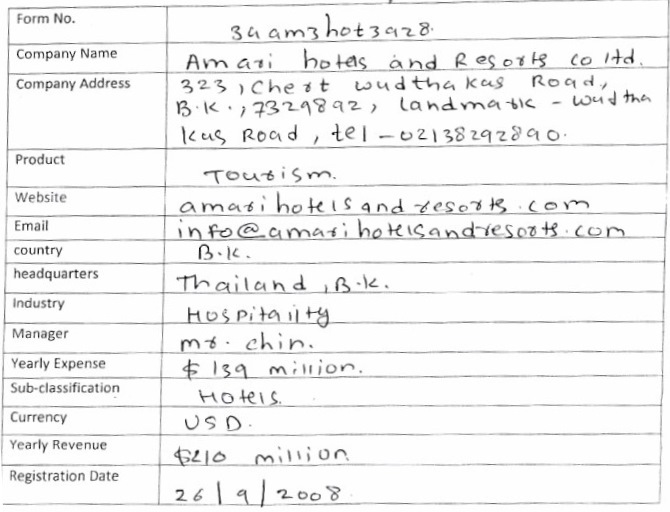 Form No. 3aam3hot3928.
Company Name Amari hotels and Resorts co ltd.
Company Address 323, Chert wudthakas Road,
B.K., 7329892, landmark - wudtha
kas Road, tel - 02138292890.
Product Tourism.
Website amarihotelsandresorts.com
Email info@amarihotelsandresorts.com
country B.K.
headquarters Thailand, B.K.
Industry Hospitality
Manager mr. chin.
Yearly Expense $ 139 million.
Sub-classification Hotels.
Currency USD.
Yearly Revenue $210 million
Registration Date 26/9/2008